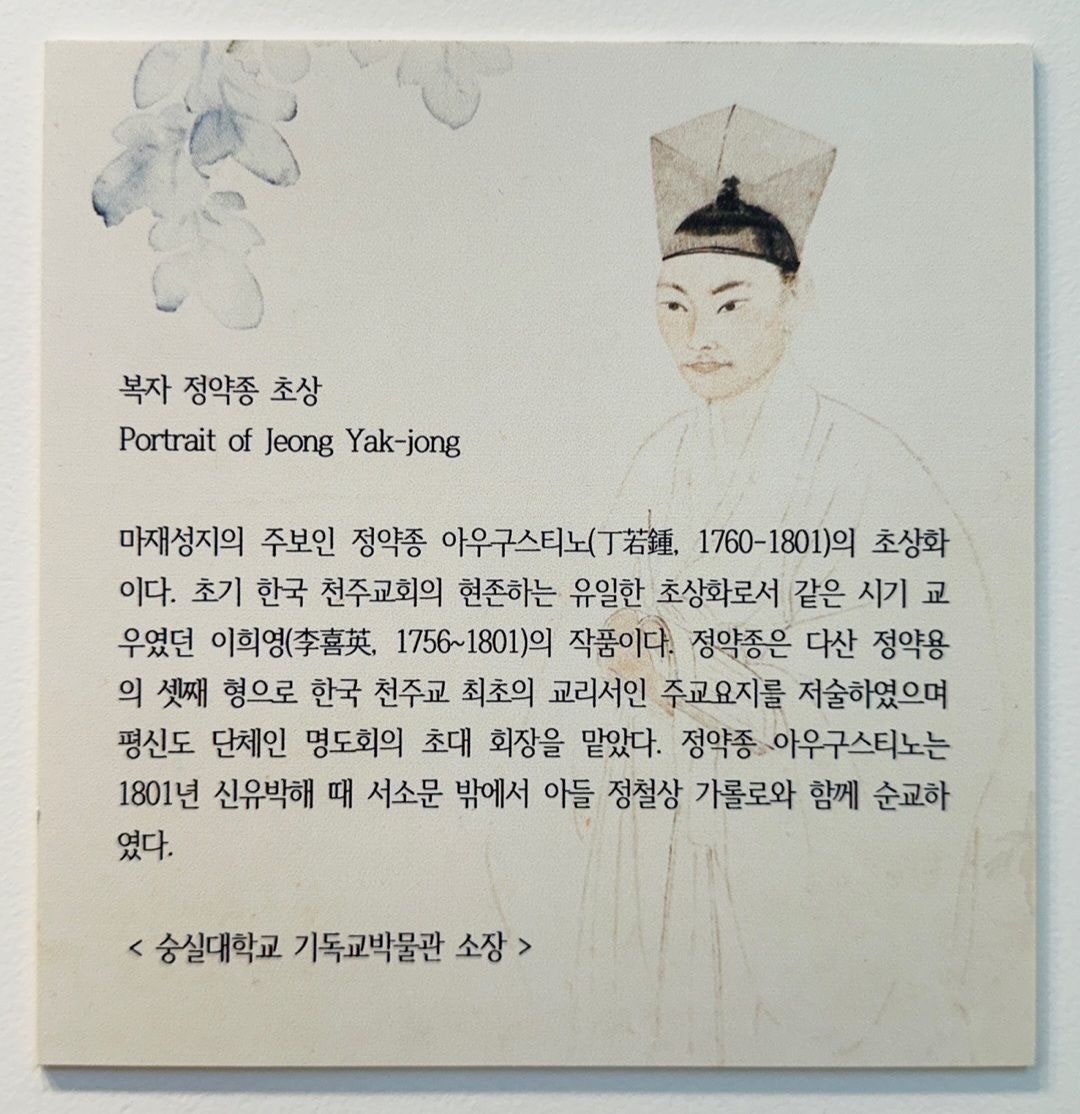 복자 정약종 초상
Portrait of Jeong Yak-jong
마재성지의 주보인 정약종 아우구스티노(丁若鍾, 1760-1801)의 초상화
이다. 초기 한국 천주교회의 현존하는 유일한 초상화로서 같은 시기 교
우였던 이희영(李喜英, 1756~1801)의 작품이다. 정약종은 다산 정약용
의 셋째 형으로 한국 천주교 최초의 교리서인 주교요지를 저술하였으며
평신도 단체인 명도회의 초대 회장을 맡았다. 정약종 아우구스티노는
1801년 신유박해 때 서소문 밖에서 아들 정철상 가롤로와 함께 순교하
였다.
< 숭실대학교 기독교박물관 소장 >